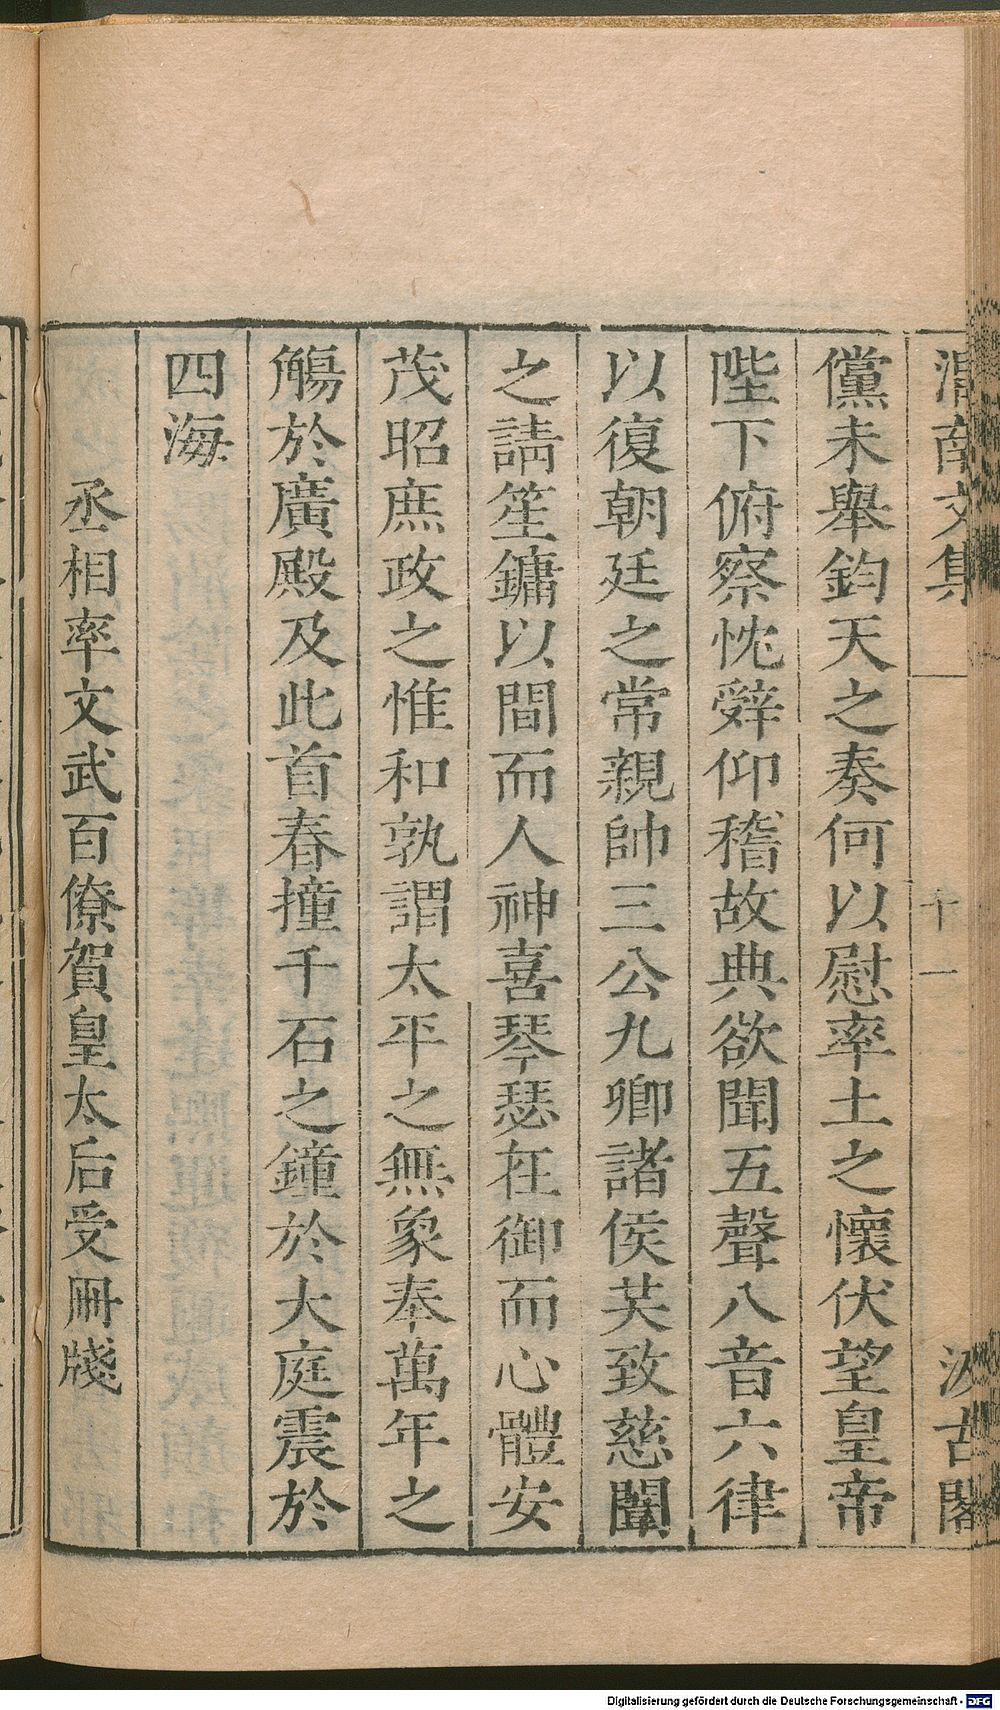 渭南文集 十一 汲古閣
儻未舉鈞天之奏何以慰率土之懷伏望皇帝
陛下俯察忱辤仰稽故典欲聞五聲八音六律
以復朝廷之常親帥三公九卿諸侯英致慈闈
之請笙鏞以間而人神喜琴瑟在御而心體安
茂昭庶政之惟和孰謂太平之無象奉萬年之
觴於廣殿及此首春撞千石之鐘於大庭震於
四海
丞相率文武百僚賀皇太后受冊牋
Digitalisierung gefördert durch die Deutsche Forschungsgemeinschaft - DFG